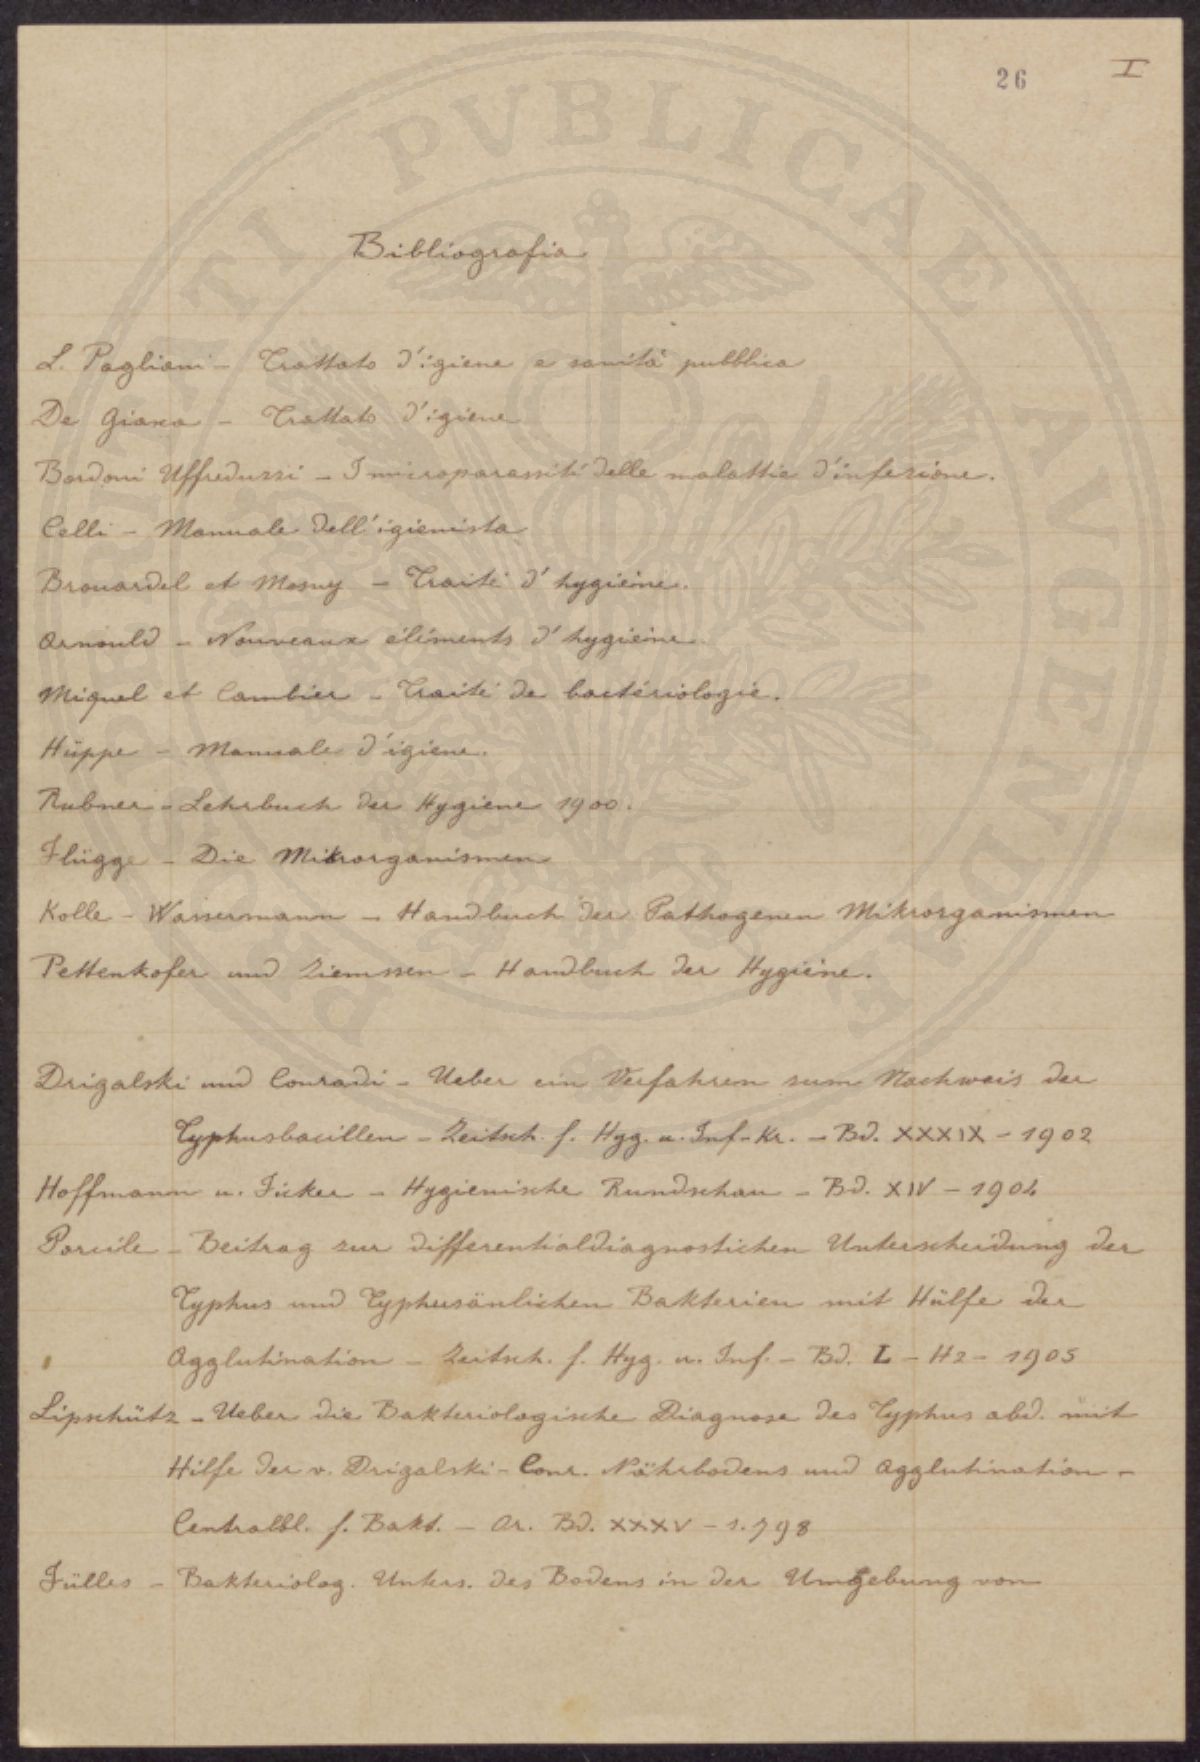 26 I
Bibliografia
L. Pagliani - Trattato d'igiene e sanità pubblica
De Giaxa - Trattato d'igiene
Bordoni Uffreduzzi - I microparassiti delle malattie d'infezione.
Celli - Manuale dell'igienista
Brouardel et Mosny - Traité d'hygiéine.
Arnould - Nouveaux éléments d'hygiéine.
Miquel et Cambier - Traité de bactériologie.
Hüppe - Manuale d'igiene.
Rubner - Lehrbuch der Hygiene 1900.
Flügge - Die Mikrorganismen
Kolle - Wassermann - Handbuch der Pathogenen Mikrorganismen
Pettenkofer und Ziemssen - Handbuch der Hygiéine.
Drigalski und Conradi - Ueber ein Verfahren zum Nachweis der
Typhusbacillen - Zeitsch. f. Hyg. u. Inf-Kr. - Bd. XXXIX - 1902
Hoffmann u. Ficker - Hygienische Rundschau - Bd. XIV - 1904
Porcile - Beitrag zur differentialdiagnostichen Unterscheidung der
Typhus und Typhusänlichen Bakterien mit Hülfe der
Agglutination - Zeitsch. f. Hyg. u. Inf. - Bd. L - H2 - 1905
Lipschütz - Ueber die Bakteriologische Diagnose des Typhus abd. mit
Hilfe der v. Drigalski - Conr. Nährbodens und Agglutination -
Centralbl. f. Bakt. - Or. Bd. XXXV - s. 798
Fülles - Bakteriolog. Unters. des Bodens in der Umgebung von
PROSPERITATI PVBLICAE AVGENDAE